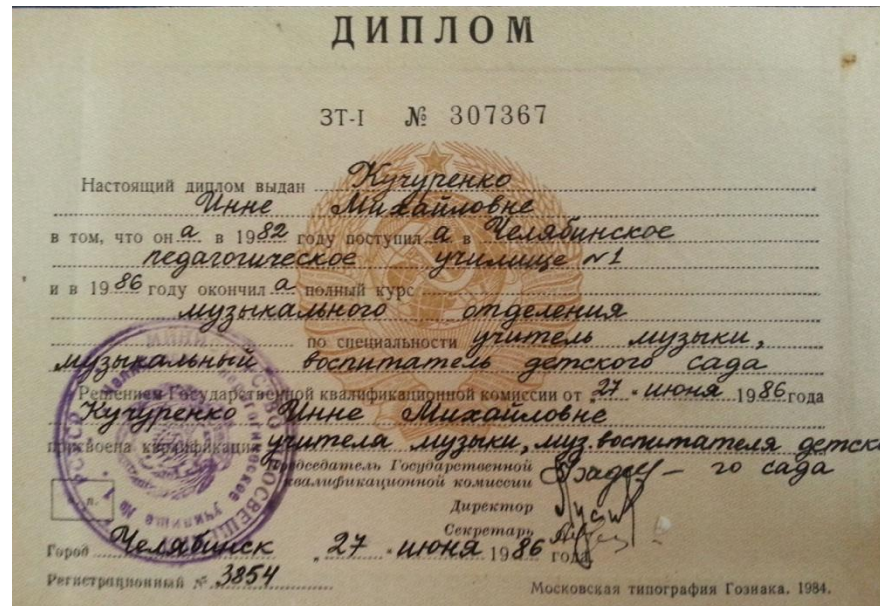 ДИПЛОМ
ЗТ-I № 307367
Настоящий диплом выдан Кучуренко
Инне Михайловне
в том, что он а в 1982 году поступил а в Челябинское
педагогическое училище №1
и в 1986 году окончил а полный курс
музыкального отделения
по специальности учитель музыки,
музыкальный воспитатель детского сада
Решением Государственной квалификационной комиссии от 27 " июня 1986 года
Кучуренко Инне Михайловне
присвоена квалификация учителя музыки, муз. воспитателя детско
Председатель Государственной – го сада
квалификационной комиссии
Директор
Секретарь
п.
Город Челябинск „ 27 " июня 1986 года
Регистрационный № 3854
Московская типография Гознака. 1984.